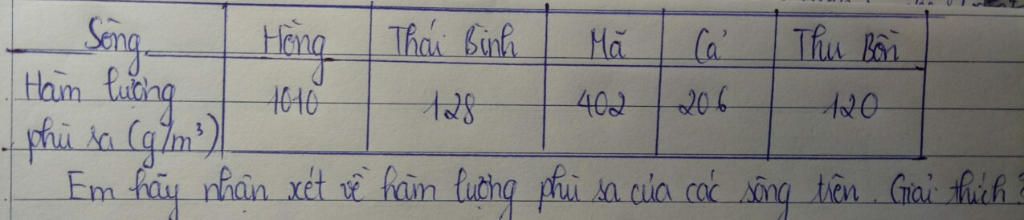 Sông Hồng Thái Bình Mã Cả Thu Bồn
Hàm lượng 1010 128 402 206 120
phù sa (g/m³)
Em hãy nhận xét về hàm lượng phù sa của các sông trên. Giải thích?